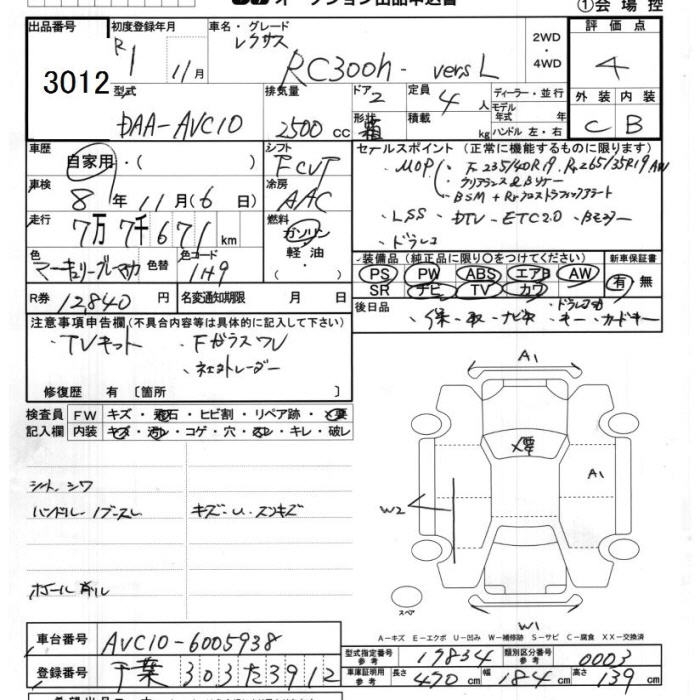 ①会場控
出品番号
3012
初度登録年月
R1 11月
車名・グレード
レクサス
RC300h - versL
2WD
・4WD
評価点
4
外装 内装
C B
型式
DAA-AVC10
排気量
2500cc
ドア
2
形状
箱
定員
4人
積載
kg
ディーラー・並行
モデル年式 年
ハンドル 左・右
車歴
自家用・( )
シフト
FCVT
車検
8年11月(6日)
冷房
AAC
走行
7万7千671km
燃料
ガソリン
軽油
・( )
色
色替
色コード
1H9
R券
12840円
名変通知期限 月 日
セールスポイント (正常に機能するものに限ります)
・MOP F235/40R19. Rr265/35R19 AW
BSM + Rrクロストラフィックアラート
・LSS ・DTV ・ETC2.0 ・Bミラー
・ドラレコ
装備品 (純正品に限り○をつけてください)
PS PW ABS エアB AW
SR ナビ TV カワ
新車保証書
有 無
後日品
・保 ・取 ・ナビ取 ・キー ・カードキー
注意事項申告欄(不具合内容等は具体的に記入して下さい)
・TVキット ・FガラスUV
修復歴 有 〔箇所 〕
検査員記入欄
FW キズ・飛石・ヒビ割・リペア跡・×要
内装 キズ・汚レ・コゲ・穴・スレ・キレ・破レ
シート、シワ
ハンドル
キズ・U・スリキズ
ホイール削ル
A1
×要
A1
W2
W1
スペア
A−キズ E−エクボ U−凹み W−補修跡 S−サビ C−腐食 XX−交換済
車台番号
AVC10-6005938
登録番号
千葉 303 た 3912
型式指定番号
参考
17834
類別区分番号
参考
0003
車庫証明用
参考
長さ 470cm
幅 184cm
高さ 139cm